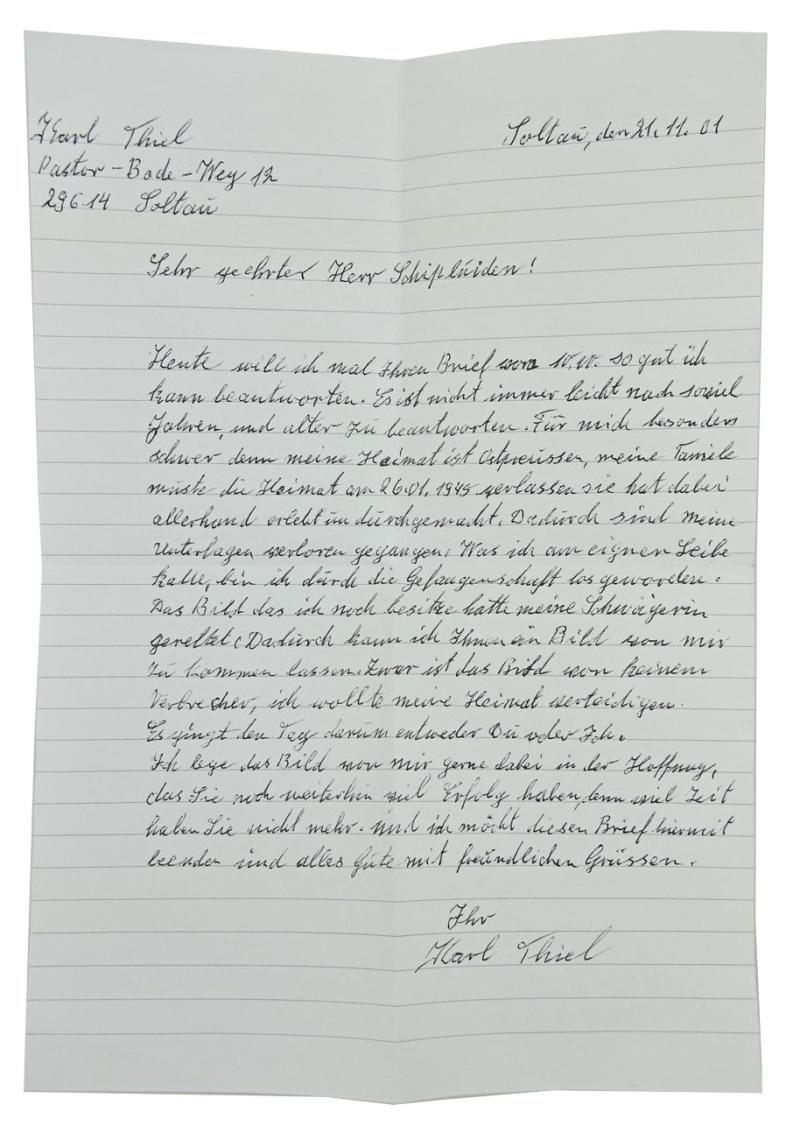 Karl Thiel
Soltau, den 21.11.01
Pastor-Bode-Weg 12
29614 Soltau
Sehr geehrter Herr Schipluiden!
Heute will ich mal Ihren Brief vom 10.10. so gut ich
kann beantworten. Es ist nicht immer leicht nach soviel
Jahren, und alter zu beantworten. Für mich besonders
schwer denn meine Heimat ist Ostpreussen, meine Famiele
muste die Heimat am 26.01.1945 verlassen sie hat dabei
allerhand erlebt un durchgemacht. Dadurch sind meine
Unterlagen verloren gegangen. Was ich am eignen Leibe
hatte, bin ich durch die Gefangenschaft los geworden.
Das Bild das ich noch besitze hatte meine Schwägerin
gerettet. Dadurch kann ich Ihnen ein Bild von mir
zu kommen lassen. Zwar ist das Bild von keinem
Verbrecher, ich wollte meine Heimat verteidigen.
Es gingt den Tag darum entweder Du oder Ich.
Ich lege das Bild von mir gerne dabei in der Hoffnung,
das Sie noch weiterhin viel Erfolg haben, denn viel Zeit
haben Sie nicht mehr. und ich möcht diesen Brief hiermit
beenden und alles Gute mit freundlichen Grüssen.
Ihr
Karl Thiel